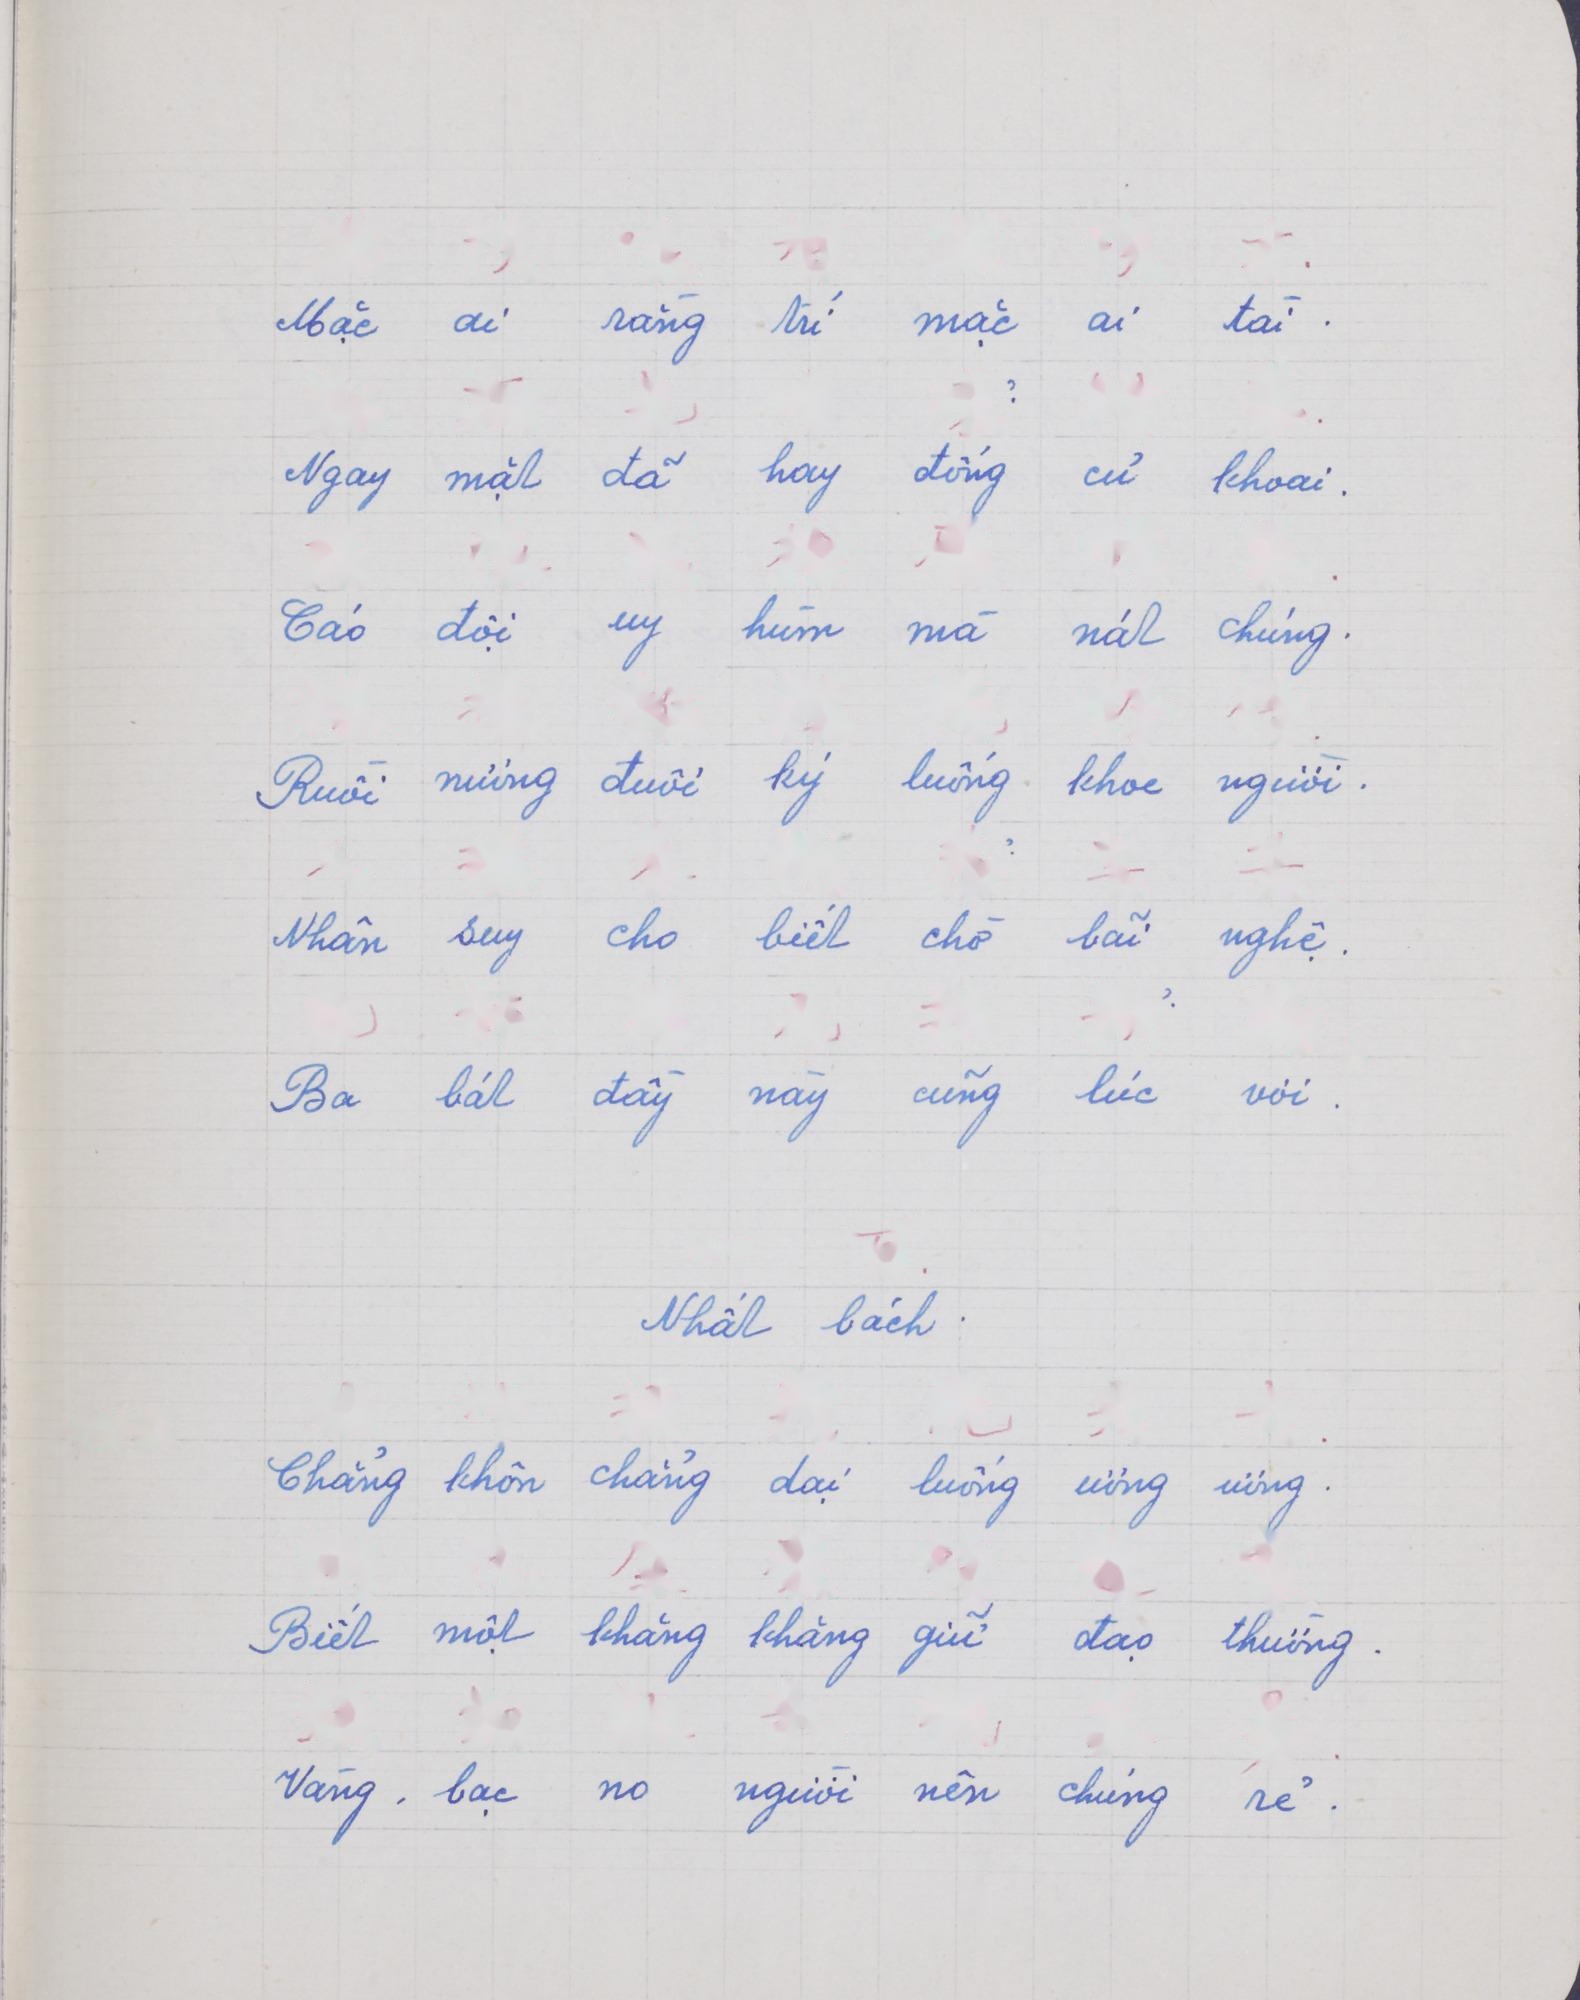 Mặc ai rằng trí mặc ai tài.
Ngay mặt đã hay đống củ khoai.
Cáo đội uy hùm mà nát chúng.
Ruồi nương đuôi ký luống khoe người.
Nhân suy cho biết chờ bãi nghệ.
Ba bát đầy này cũng lúc vơi.
Nhất bách.
Chẳng khôn chẳng dại luống ương ương.
Biết một khăng khăng giữ đạo thường.
Vàng, bạc no người nên chúng rẻ.